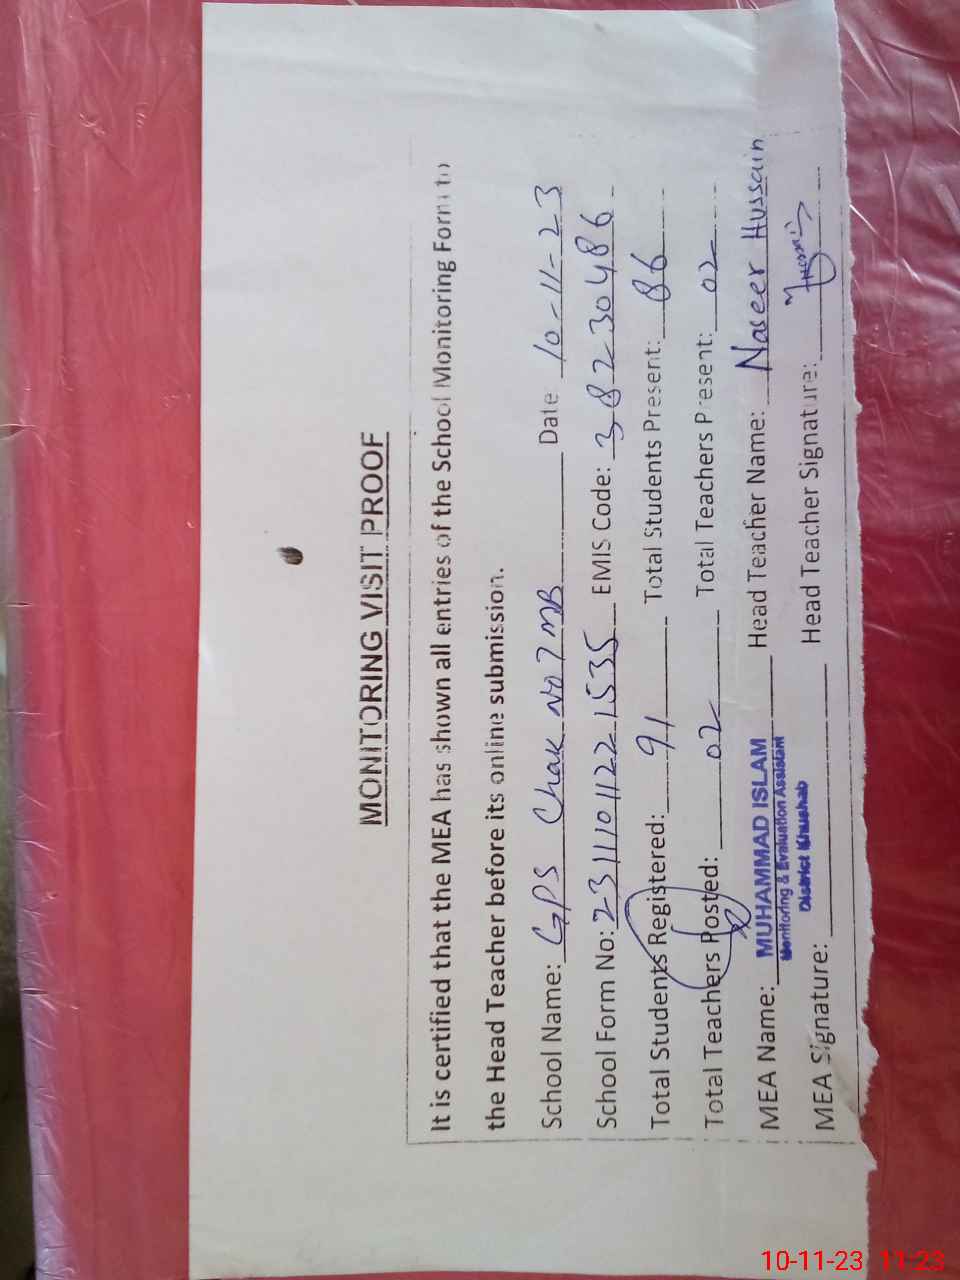 MONITORING VISIT PROOF
It is certified that the MEA has shown all entries of the School Monitoring Form to
the Head Teacher before its online submission.
School Name: GPS Chak No 7 MB Date 10-11-23
School Form No: 23111011221535 EMIS Code: 38230486
Total Students Registered: 91 Total Students Present: 86
Total Teachers Posted: 02 Total Teachers Present: 02
MEA Name: MUHAMMAD ISLAM Head Teacher Name: Naseer Hussain
Monitoring & Evaluation Assistant
District Khushab
MEA Signature: Head Teacher Signature:
10-11-23 11:23